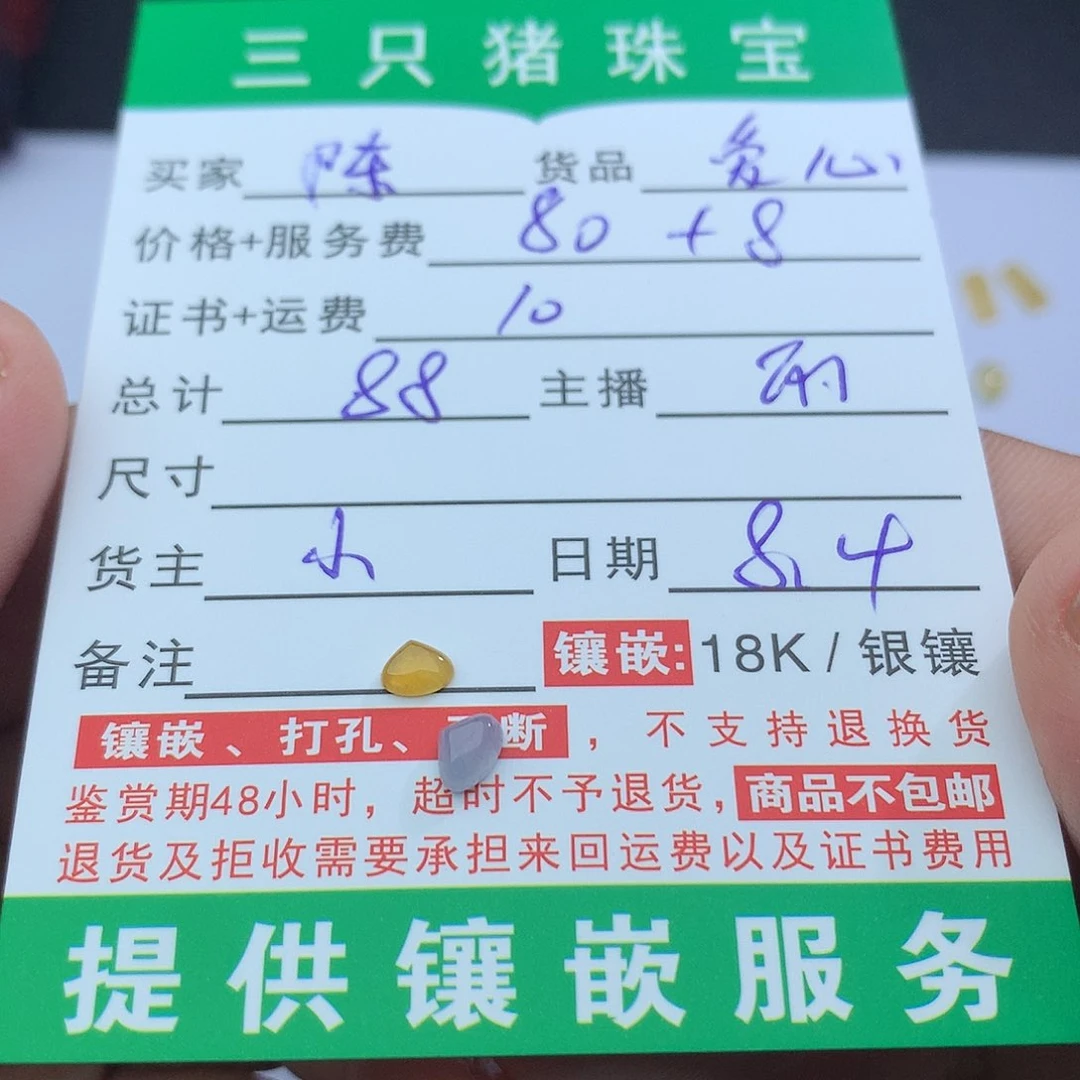 三只猪珠宝
买家 陈 货品 爱心
价格+服务费 80+8
证书+运费 10
总计 88 主播
尺寸
货主 小 日期 8.4
备注 镶嵌:18K/银镶
镶嵌、打孔、断，不支持退换货
鉴赏期48小时，超时不予退货，商品不包邮
退货及拒收需要承担来回运费以及证书费用
提供镶嵌服务